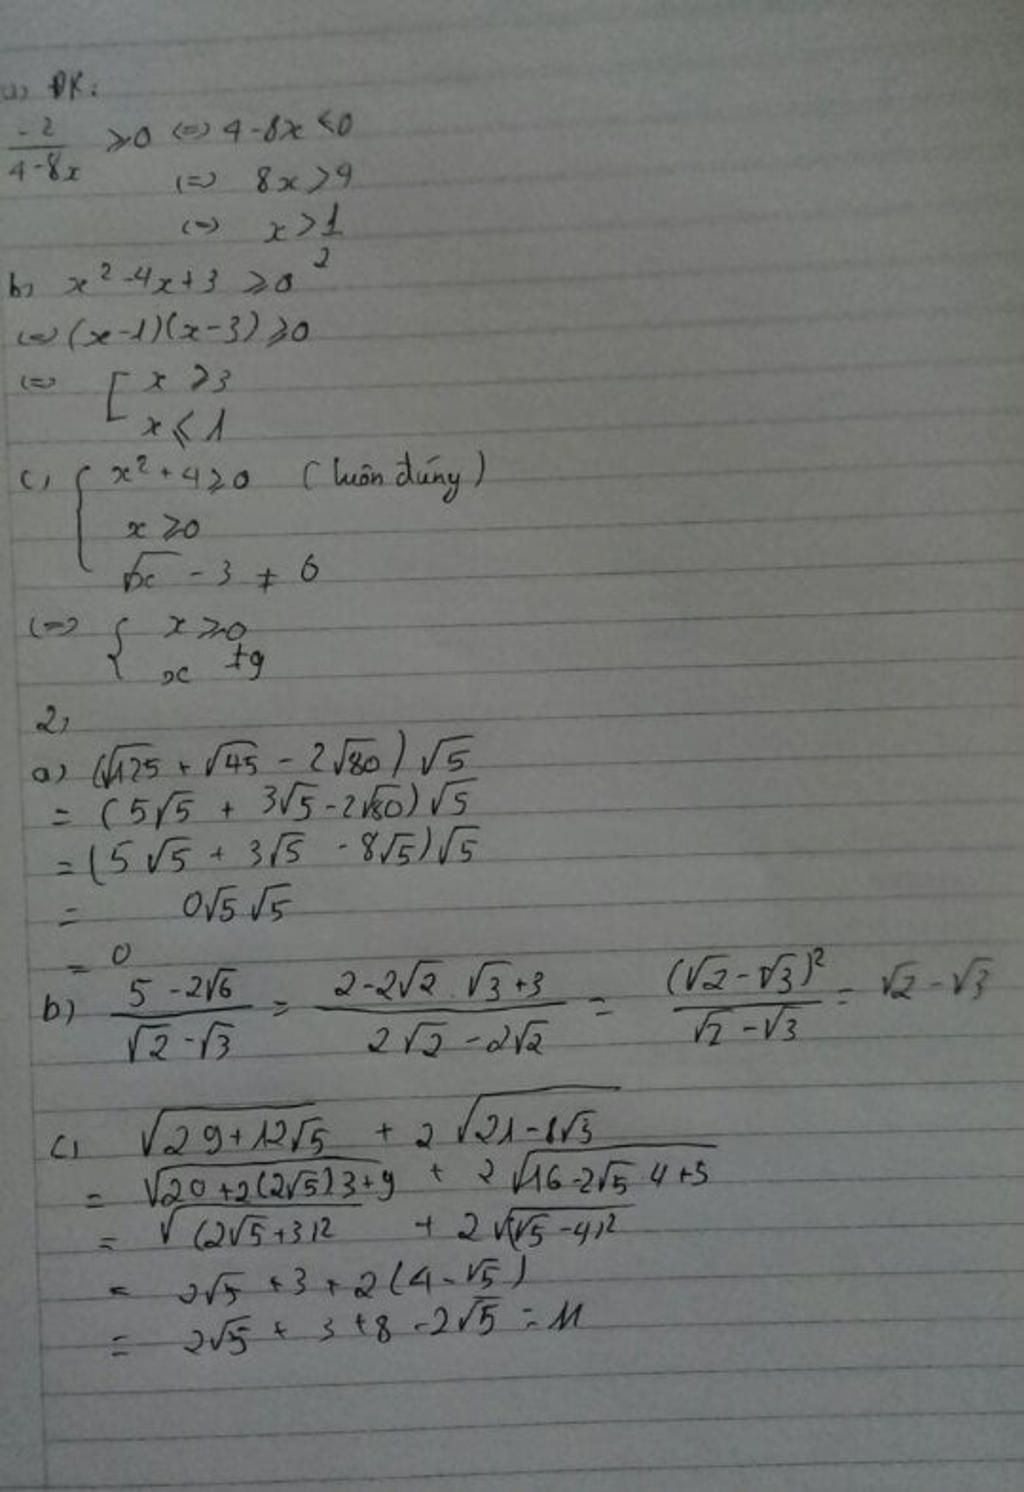 a) ĐK:
-2/(4-8x) ≥0 (=) 4-8x <0
(=) 8x >4
(=) x > 1/2
b) x² -4x+3 ≥0
(=) (x-1)(x-3) ≥0
(=) [ x ≥3
x ≤ 1
c) { x² + 4 ≥0 (luôn đúng)
x ≥0
√x - 3 ≠ 0
(=) { x ≥0
x ≠9
2)
a) (√125 + √45 - 2√80) √5
= (5√5 + 3√5 - 2√80) √5
= (5√5 + 3√5 - 8√5) √5
= 0√5 √5
= 0
b) (5 - 2√6)/(√2 - √3) = (2-2√2 . √3 +3)/(2√2 - 2√2) = (√2 - √3)²/(√2 - √3) = √2 - √3
c) √(29+12√5) + 2 √(21-8√3)
= √(20+2(2√5)3+9) + 2 √(16-2√5 4+5)
= √(2√5+3)² + 2 √(√5-4)²
= 2√5 + 3 + 2(4-√5)
= 2√5 + 3 +8 -2√5 = 11